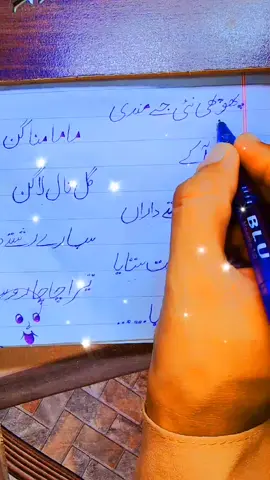 پھوپھی نئی جے مندی
ماما منا گن
آ کے
گل نال لا گن
داراں
سارے رشتے
ستایا
تیرا چاچا
BLU